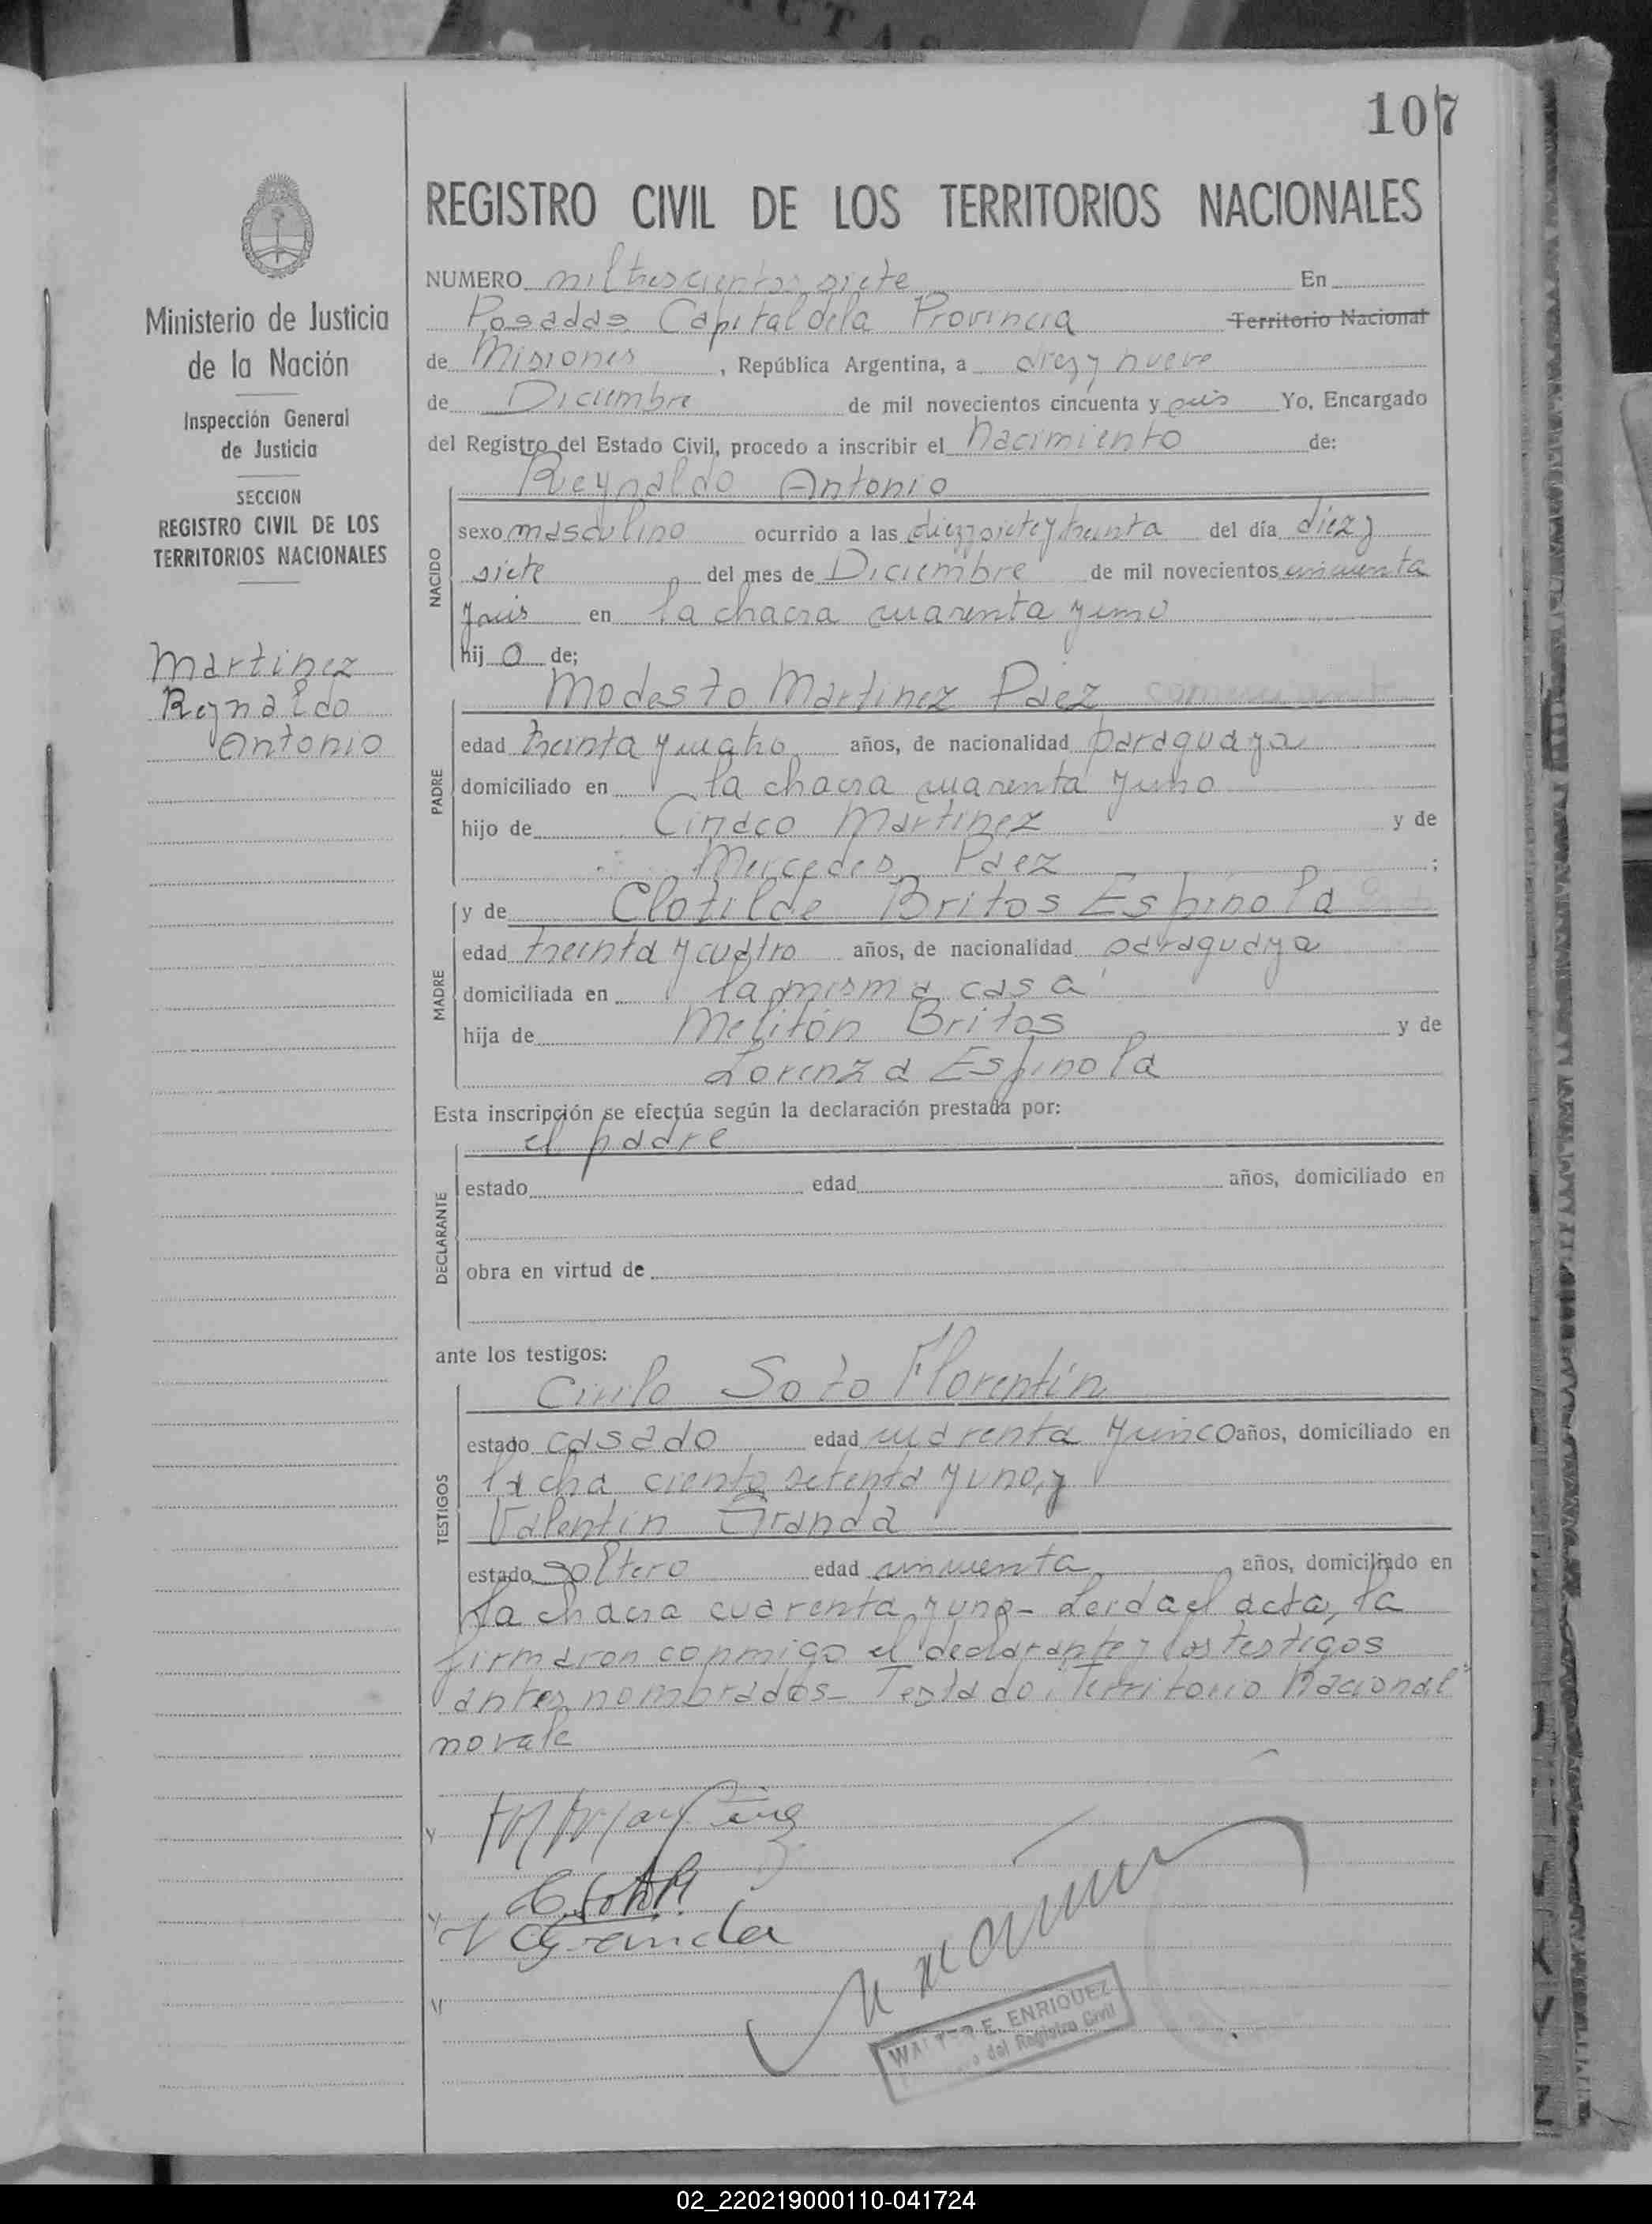 107
REGISTRO CIVIL DE LOS TERRITORIOS NACIONALES
Ministerio de Justicia
de la Nación
Inspección General
de Justicia
SECCION
REGISTRO CIVIL DE LOS
TERRITORIOS NACIONALES
Martinez
Reynaldo
Antonio
NUMERO mil trescientos siete En
Posadas Capital de la Provincia Territorio Nacional
de Misiones, República Argentina, a diez y nueve
de Diciembre de mil novecientos cincuenta y seis Yo, Encargado
del Registro del Estado Civil, procedo a inscribir el nacimiento de:
Reynaldo Antonio
NACIDO
sexo masculino ocurrido a las diez y siete y treinta del día diez y
siete del mes de Diciembre de mil novecientos cincuenta
y seis en la chacra cuarenta y uno
hijo de;
Modesto Martinez Paez
PADRE
edad treinta y cuatro años, de nacionalidad paraguaya
domiciliado en la chacra cuarenta y uno
hijo de Ciriaco Martinez y de
Mercedes Paez;
y de Clotilde Britos Espinola
MADRE
edad treinta y cuatro años, de nacionalidad paraguaya
domiciliada en la misma casa
hija de Melitón Britos y de
Lorenza Espinola
Esta inscripción se efectúa según la declaración prestada por:
el padre
DECLARANTE
estado edad años, domiciliado en
obra en virtud de
ante los testigos:
Cirilo Soto Florentín
TESTIGOS
estado casado edad cuarenta y cinco años, domiciliado en
la cha ciento setenta y uno, y
Valentin Granda
estado soltero edad cincuenta años, domiciliado en
la chacra cuarenta y uno- Leida el acta, la
firmaron conmigo el declarante y los testigos
antes nombrados- Testado: Territorio Nacional"
no vale
V Granda
E. ENRIQUEZ
del Registro Civil
02_220219000110-041724